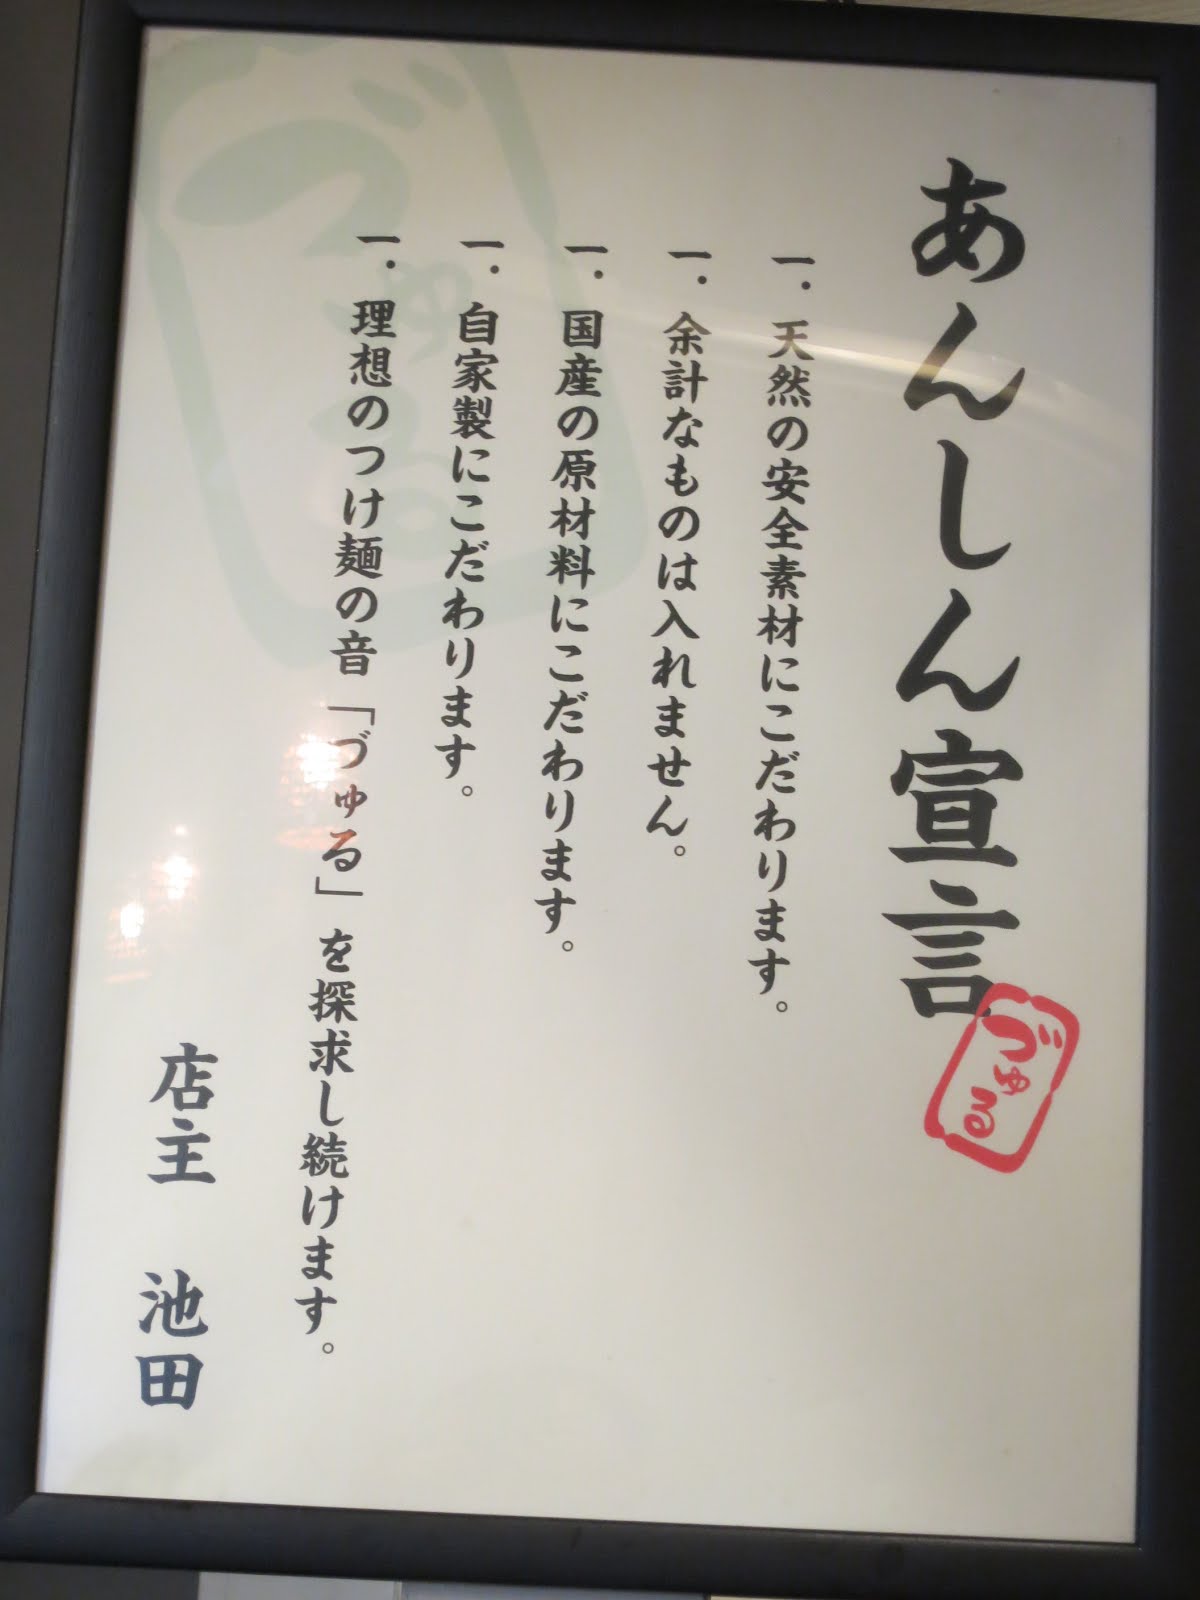 あんしん宣言
づゅる
一．天然の安全素材にこだわります。
一．余計なものは入れません。
一．国産の原材料にこだわります。
一．自家製にこだわります。
一．理想のつけ麺の音「づゅる」を探求し続けます。
店主　池田
づゅる